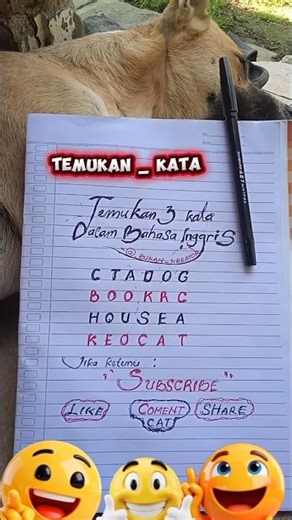 TEMUKAN _ KATA
Temukan 3 kata
Dalam Bahasa Inggris
@ BUKAN_KREATOR
C T A D O G
B O O K R C
H O U S E A
K E O C A T
Jika ketemu :
"SUBSCRIBE"
LIKE COMENT SHARE
CAT